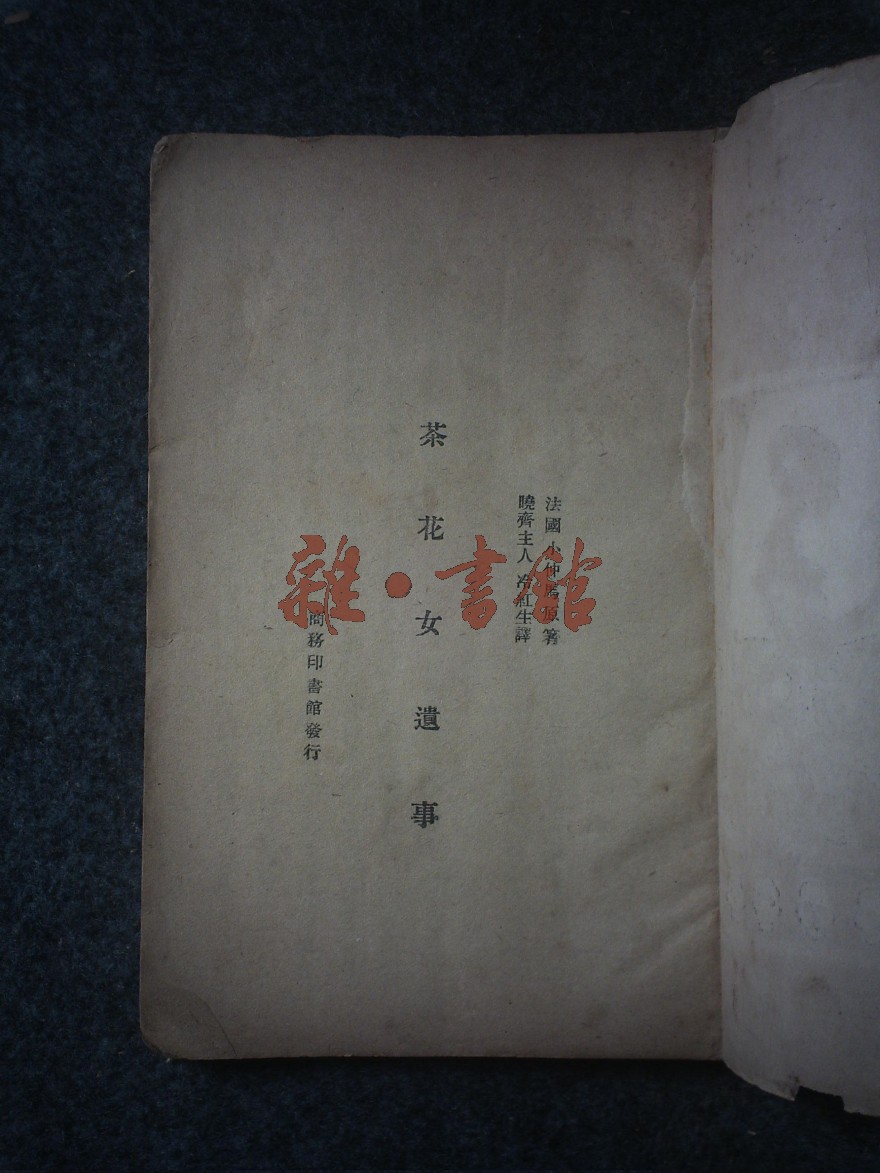 法國小仲馬原著
曉齋主人 冷紅生譯
茶花女遺事
商務印書館發行
雜·書館